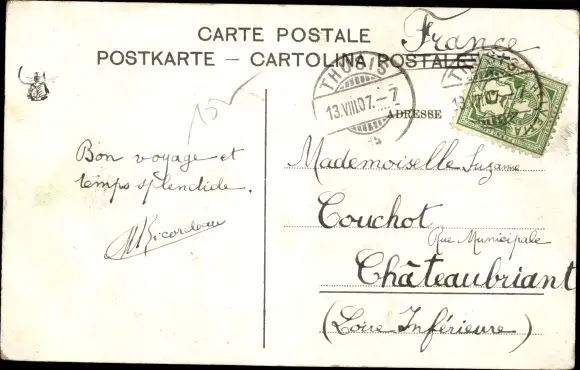 CARTE POSTALE
France
POSTKARTE – CARTOLINA POSTALE
THUSIS
13.VIII.07.–7
ADRESSE
Bon voyage et
temps splendide.
Mademoiselle Suzanne
Couchot
Rue Municipale
Châteaubriant
(Loire Inférieure)